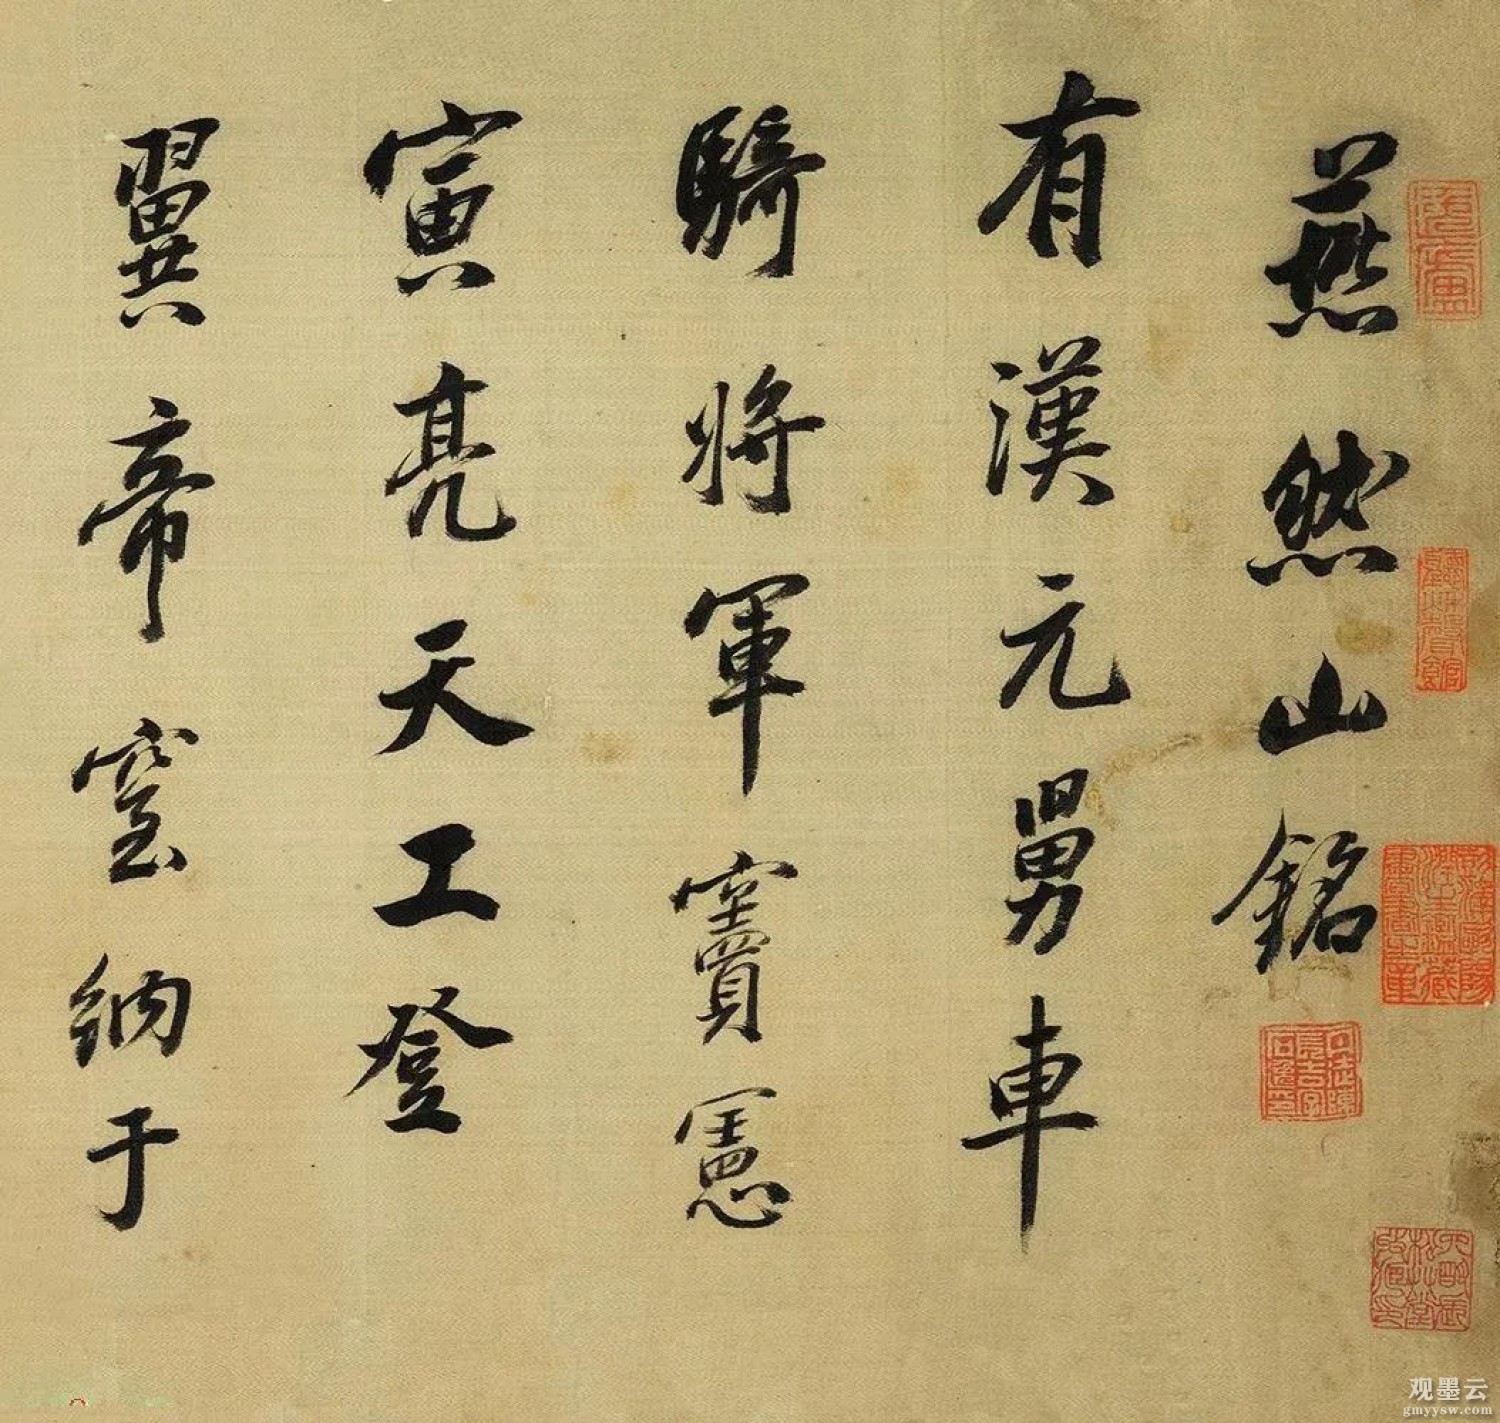 燕然山銘
有漢元舅車
騎將軍竇憲
寅亮天工登
翼帝室納于
观墨云
gmyysw.com